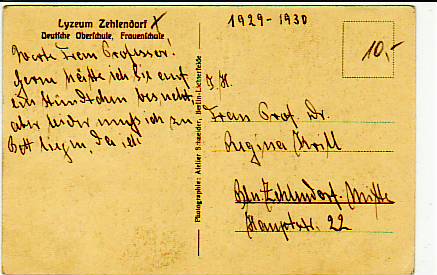 Lyzeum Zehlendorf X
Deutsche Oberschule, Frauenschule
Werte Frau Professor!
Gerne hätte ich Sie auf
ein Stündchen besucht,
aber leider muß ich zu
Bett liegen, da ich
Photographie: Atelier Schneider, Berlin-Lichterfelde
1929-1930
10,-
I. H.
Frau Prof. Dr.
Regina
Bln. Zehlendorf-Mitte
Hauptstr. 22